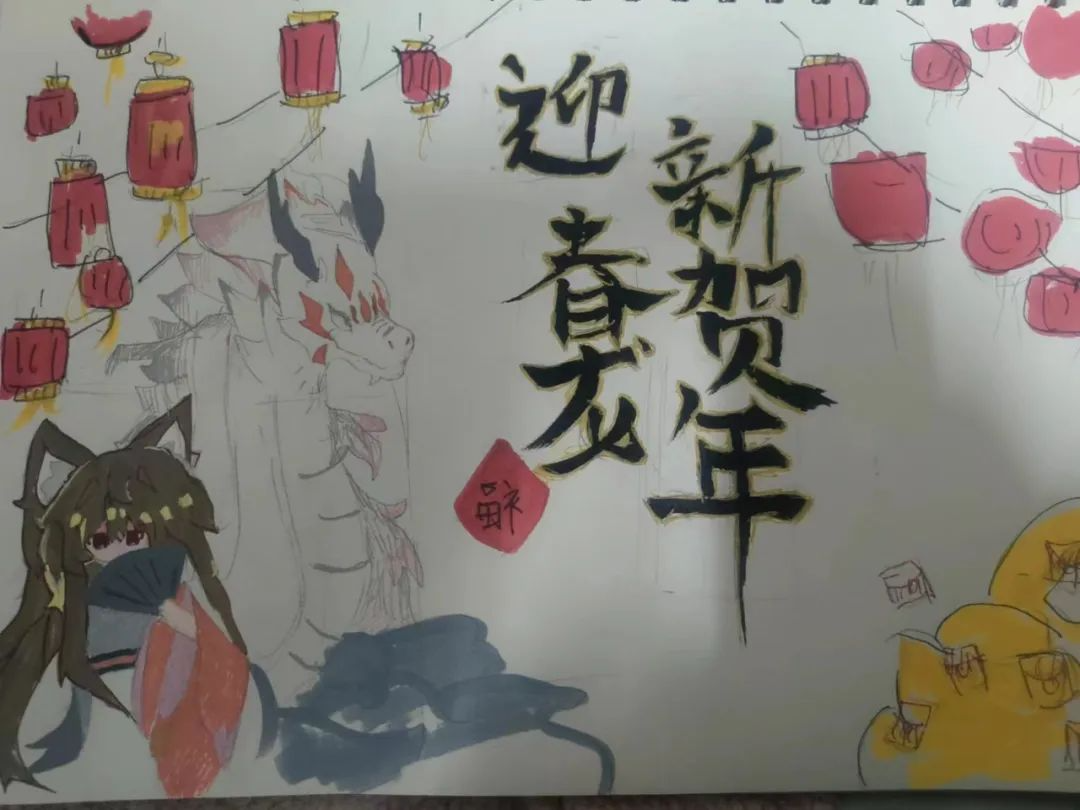 新贺年
迎春龙
福